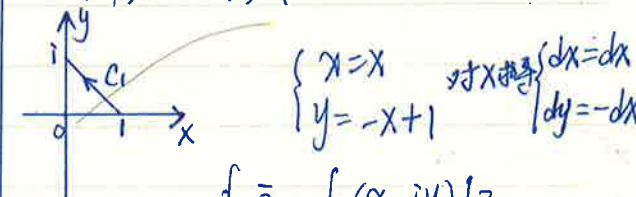 y
i
C₁
0 1 x
{ x=x
y=-x+1
对x求导 { dx=dx
dy=-dx